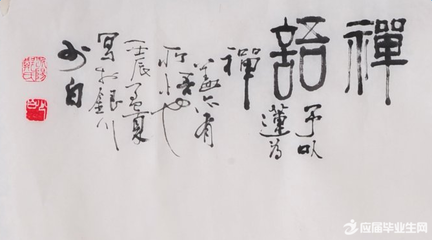 禪語
予以蓮為
禪
蓋亦有
所悟也
壬辰孟夏
寫於銀川
少白
应届毕业生网